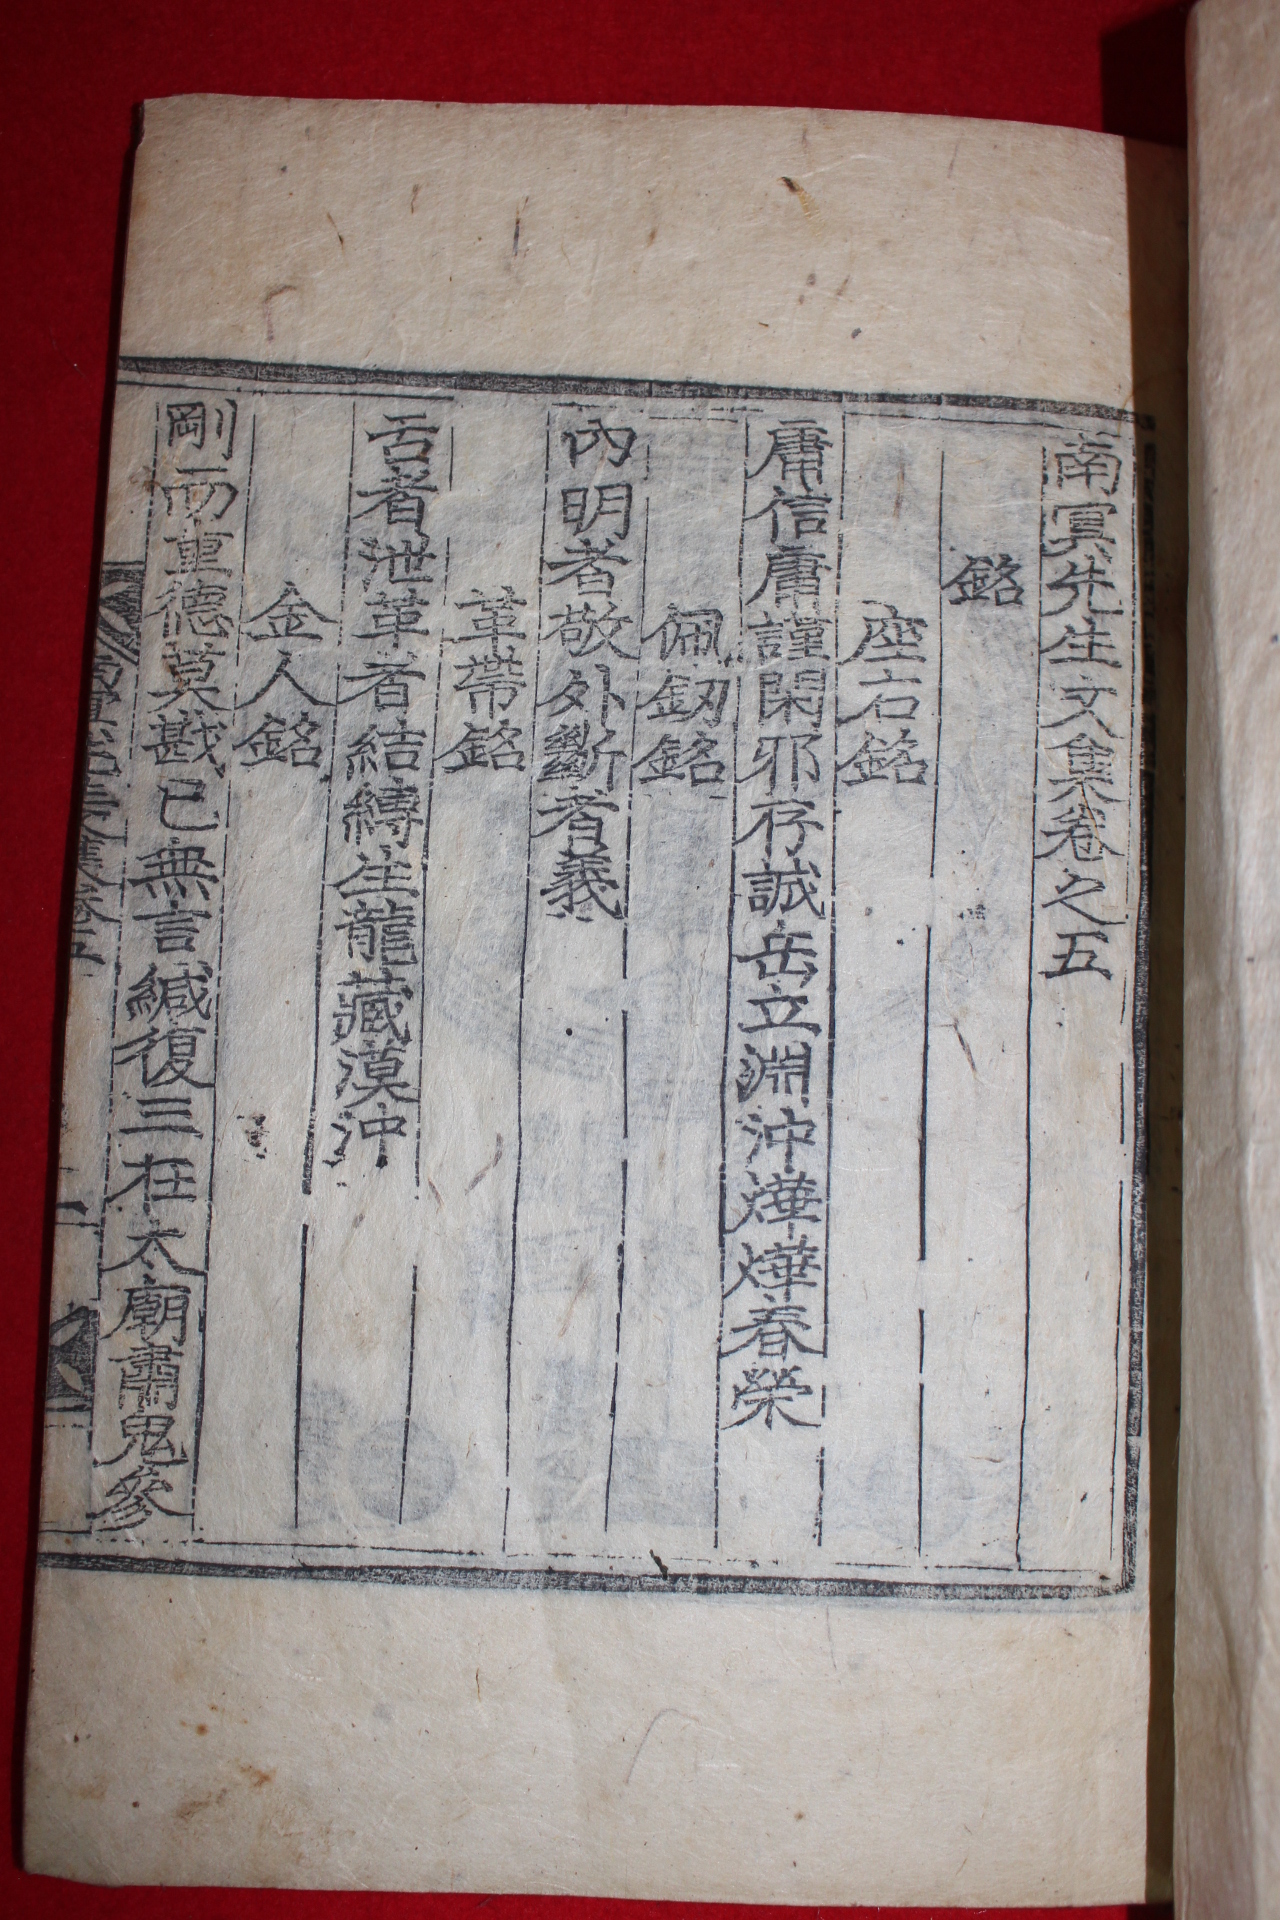 南冥先生文集卷之五
銘
座右銘
庸信庸謹閑邪存誠岳立淵沖燁燁春榮
佩劒銘
內明者敬外斷者義
革帶銘
舌者泄革者結縛生龍藏漠沖
金人銘
剛而重德莫戡已無言緘復三在太廟肅鬼參
文集卷五
一